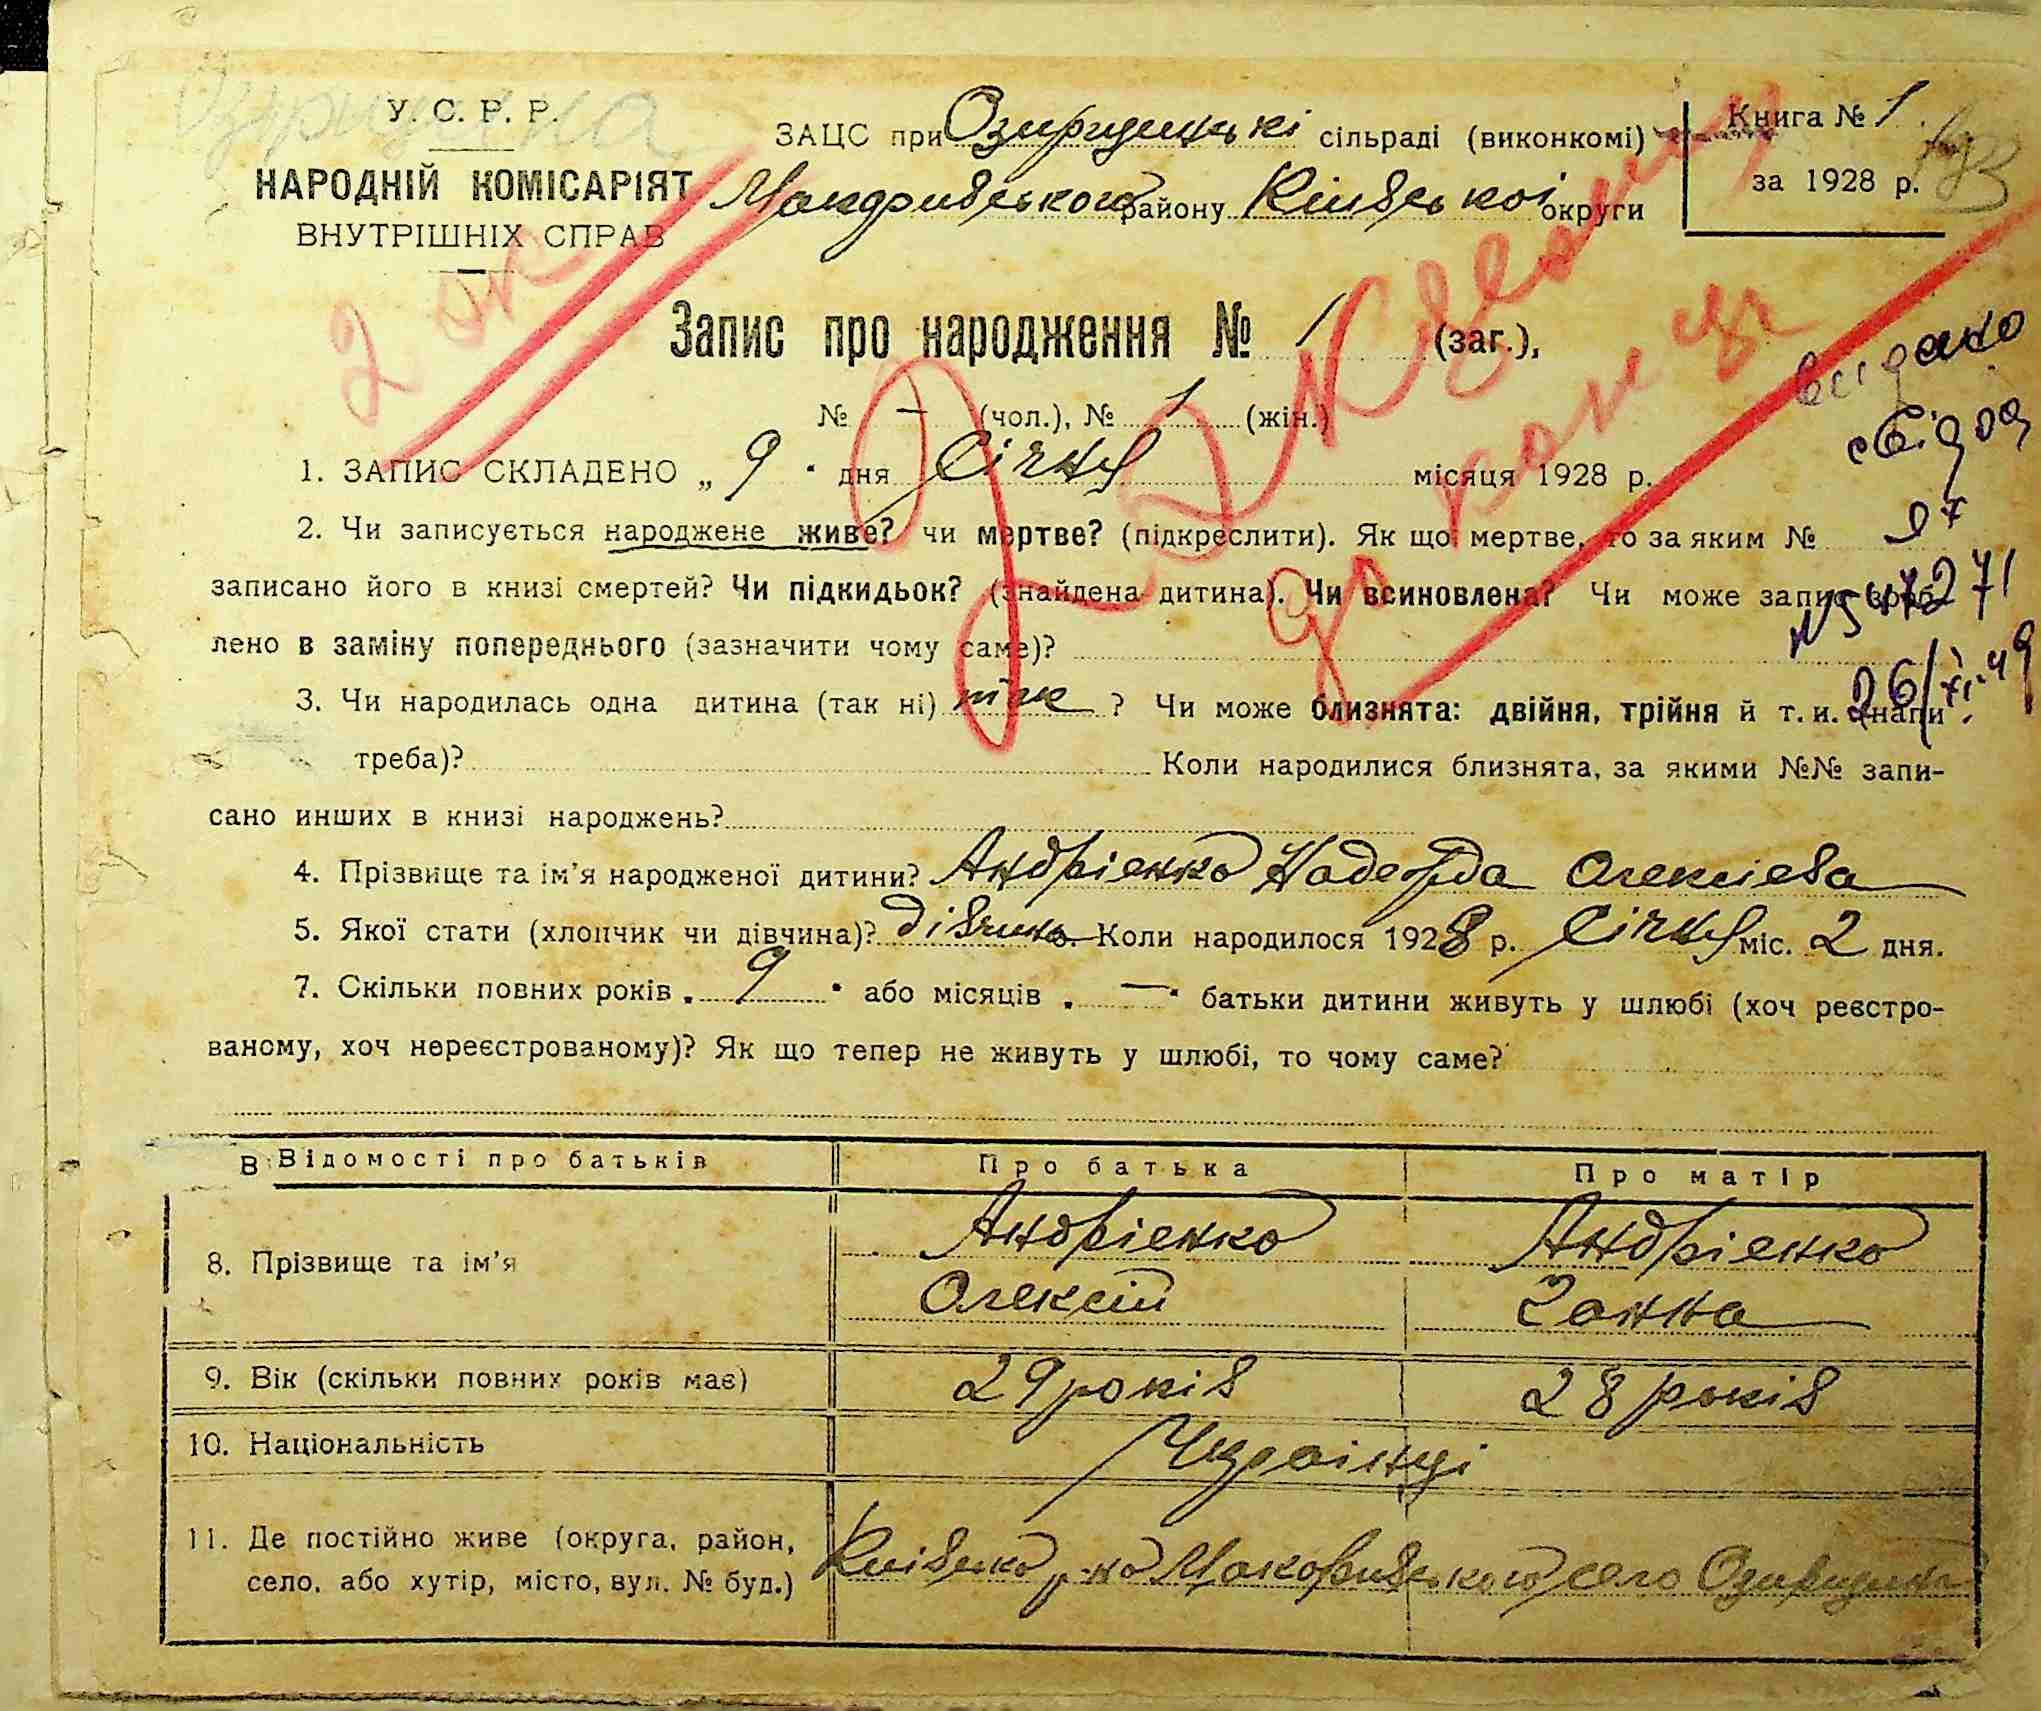 У. С. Р. Р.
НАРОДНІЙ КОМІСАРІЯТ
ВНУТРІШНІХ СПРАВ
ЗАЦС при сільраді (виконкомі)
району Київської округи
Книга № 1
за 1928 р.
Запис про народження № 1 (заг.),
№ — (чол.), № 1 (жін.)
1. ЗАПИС СКЛАДЕНО „ 9 " дня Січня місяця 1928 р.
2. Чи записується народжене живе? чи мертве? (підкреслити). Як що мертве, то за яким №
записано його в книзі смертей? Чи підкидьок? (знайдена дитина). Чи всиновлена? Чи може запис зроб-
лено в заміну попереднього (зазначити чому саме)?
3. Чи народилась одна дитина (так ні) так ? Чи може близнята: двійня, трійня й т. и.
треба)? Коли народилися близнята, за якими №№ запи-
сано инших в книзі народжень?
4. Прізвище та ім'я народженої дитини? Андрієнко Надежда Олексієва
5. Якої стати (хлопчик чи дівчина)? дівчина. Коли народилося 1928 р. Січня міс. 2 дня.
7. Скільки повних років „ 9 " або місяців „ — " батьки дитини живуть у шлюбі (хоч реєстро-
ваному, хоч нереєстрованому)? Як що тепер не живуть у шлюбі, то чому саме?
Відомості про батьків
Про батька
Про матір
8. Прізвище та ім'я
Андрієнко
Олексій
Андрієнко
Ганна
9. Вік (скільки повних років має)
29 років
28 років
10. Національність
Українці
11. Де постійно живе (округа, район,
село, або хутір, місто, вул. № буд.)
село
видано
свідоц
26/XI-49